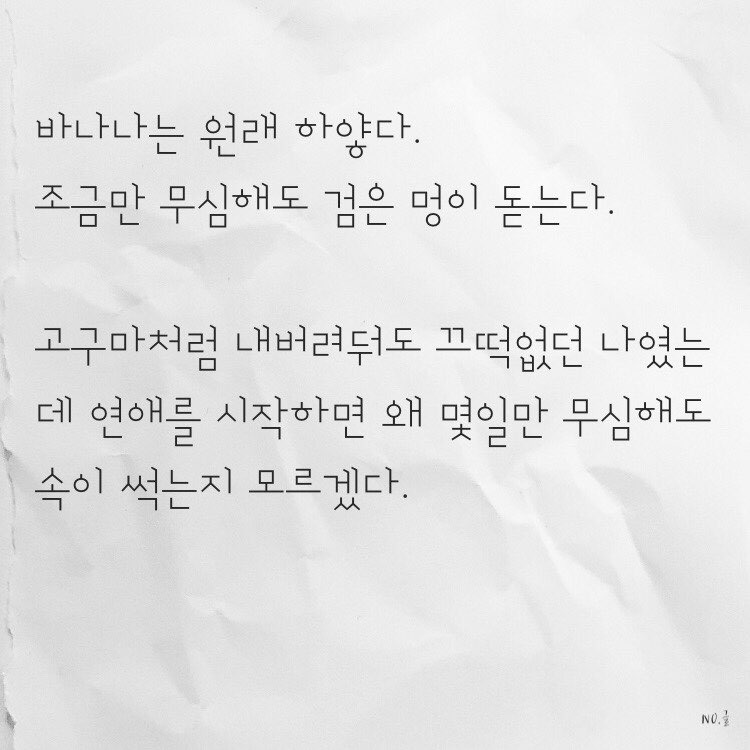 바나나는 원래 하얗다.
조금만 무심해도 검은 멍이 돋는다.
고구마처럼 내버려둬도 끄떡없던 나였는
데 연애를 시작하면 왜 몇일만 무심해도
속이 썩는지 모르겠다.
NO.글